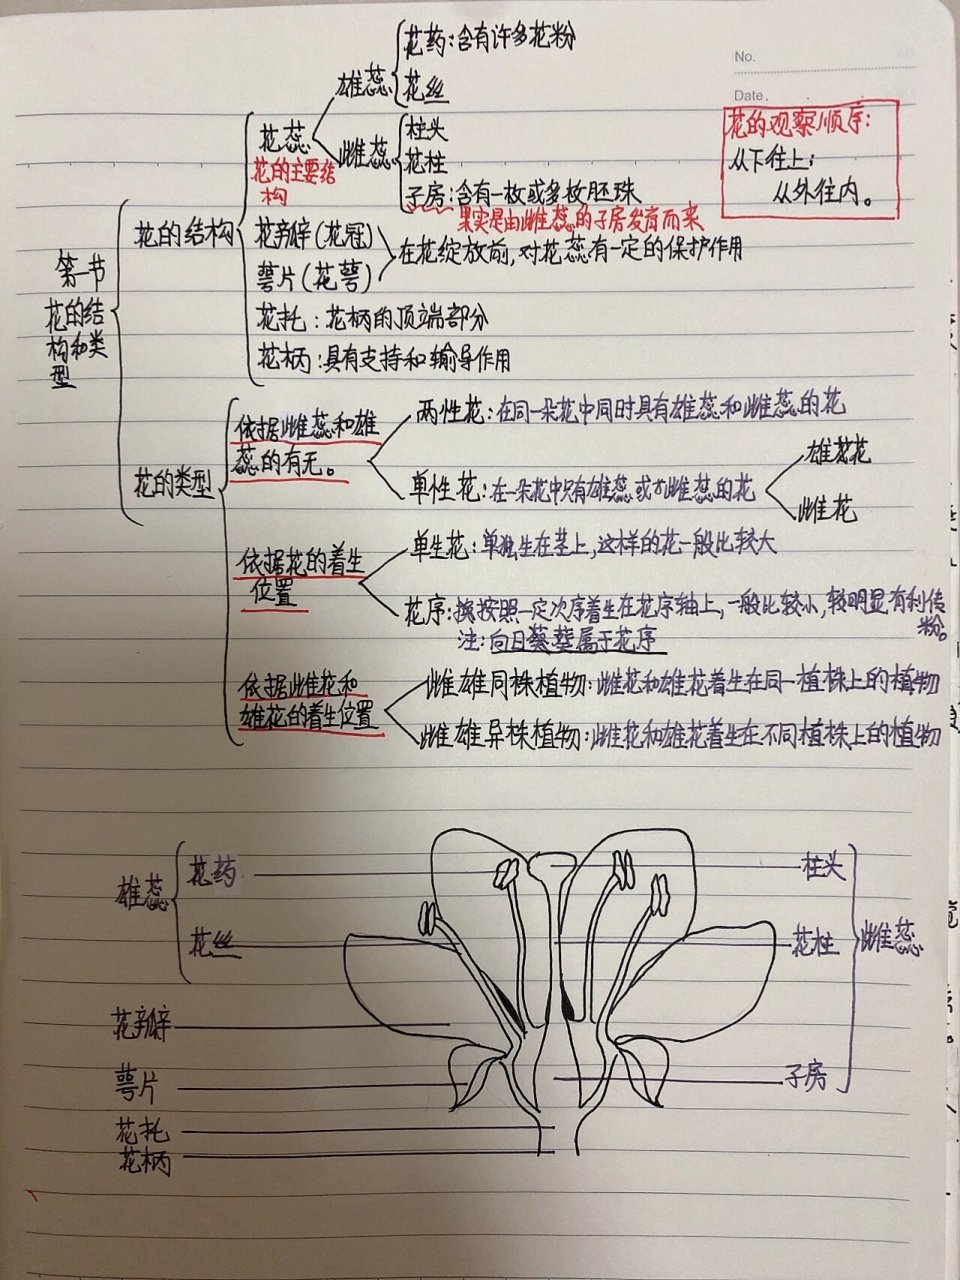 花药：含有许多花粉
雄蕊
花丝
No.
Date.
花的观察顺序：
从下往上；
从外往内。
花蕊
花的主要结
构
雌蕊
柱头
花柱
子房：含有一枚或多枚胚珠
果实是由雌蕊的子房发育而来
花的结构
花瓣（花冠）
萼片（花萼）
在花绽放前，对花蕊有一定的保护作用
花托：花柄的顶端部分
花柄：具有支持和输导作用
第一节
花的结
构和类
型
花的类型
依据雌蕊和雄
蕊的有无。
两性花：在同一朵花中同时具有雄蕊和雌蕊的花
单性花：在一朵花中只有雄蕊或雌蕊的花
雄花
雌花
依据花的着生
位置
单生花：单独生在茎上，这样的花一般比较大
花序：按照一定次序着生在花序轴上，一般比较小，较明显有利传
粉。
注：向日葵属于花序
依据雌花和
雄花的着生位置
雌雄同株植物：雌花和雄花着生在同一植株上的植物
雌雄异株植物：雌花和雄花着生在不同植株上的植物
雄蕊
花药
花丝
柱头
花柱
雌蕊
花瓣
萼片
子房
花托
花柄